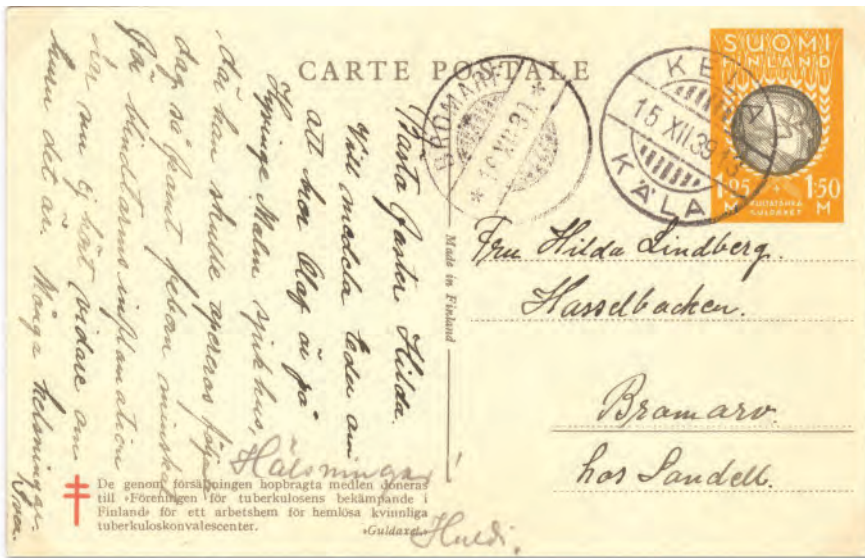 CARTE POSTALE
SUOMI
FINLAND
1.25 + 1.50
M M
KULTATÄHKÄ
GULDAXET
KEILA
15 XII.39.13
KÄLA
BROMARV
* 16.XII.39. *
Made in Finland
Fru Hilda Lindberg.
Hasselbacken.
Bromarv.
hos Sandell.
Bästa Faster Hilda.
Vill meddela Eder om
att bror Olof är på
Malm sjukhus,
där han skulle opereras följande
dag, så framt febern minskar
för blindtarms inflamation
har nu ej hört vidare om
honom det är. Många helsningar.
Hälsningar
Huldi.
De genom försäljningen hopbragta medlen doneras
till »Föreningen för tuberkulosens bekämpande i
Finland» för ett arbetshem för hemlösa kvinnliga
tuberkuloskonvalescenter. »Guldaxet»